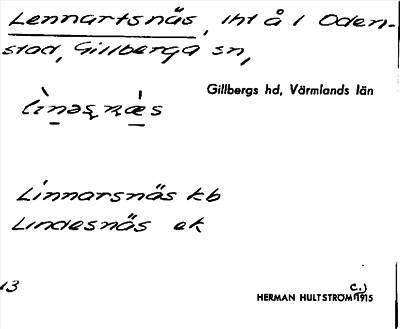 Lennartsnäs, lht å / Oden-
stad, Gillberga sn,
Gillbergs hd, Värmlands län
Linnarsnäs kb
Lindesnäs ek
13
c.)
HERMAN HULTSTRÖM 1915